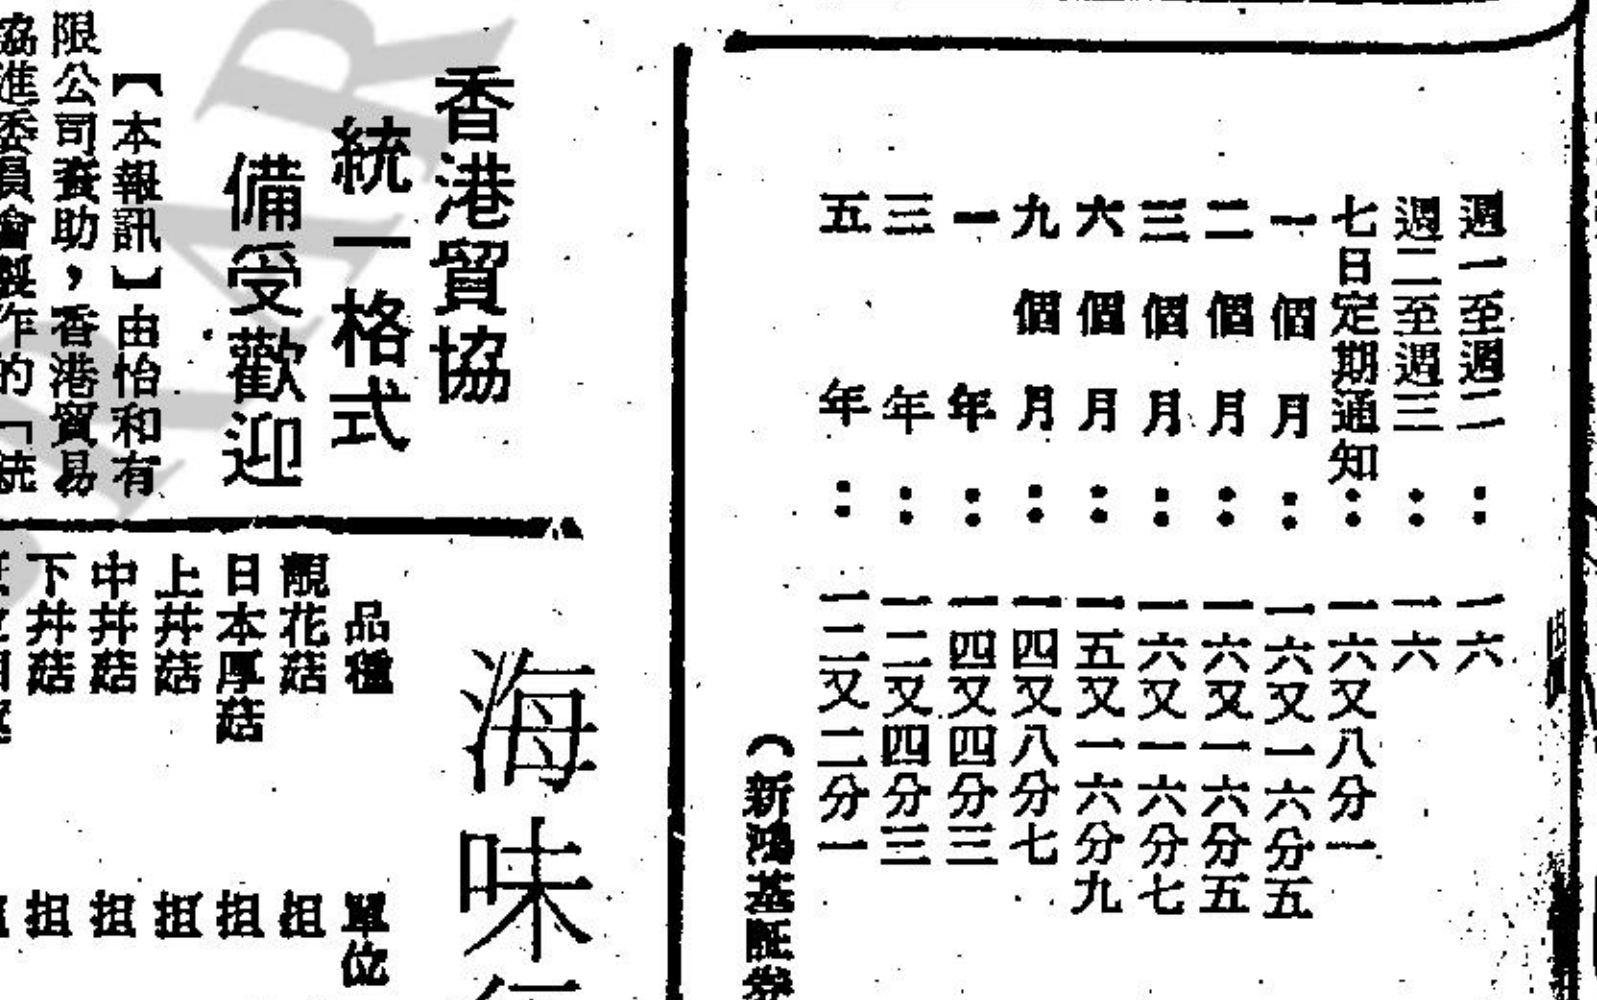 週一至週二：一六
週二至週三：一六
七日定期通知：一六又八分一
一個月：一六又一六分五
二個月：一六又一六分五
三個月：一六又一六分七
六個月：一五又一六分九
九個月：一四又八分七
一年：一四又四分三
三年：一二又四分三
五年：一二又二分一
（新鴻基証券
香港貿協
統一格式
備受歡迎
【本報訊】由怡和有
限公司賛助，香港貿易
協進委員會製作的「統
海味
品種 單位
靚花菇 担
日本厚菇 担
上丼菇 担
中丼菇 担
下丼菇 担